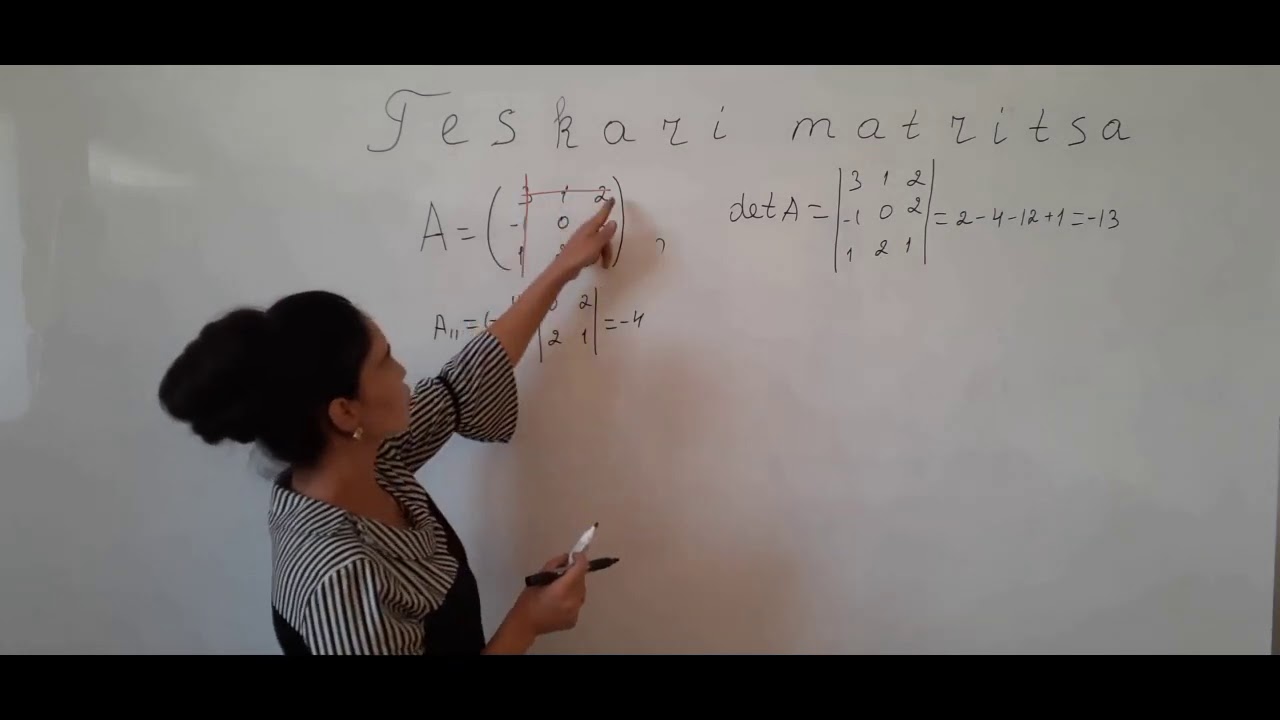 Teskari matritsa
A = ( 3 1 2
-1 0
1 )
det A = | 3 1 2
-1 0 2
1 2 1 | = 2 - 4 - 12 + 1 = -13
A₁₁ = (- | 2
2 1 | = -4